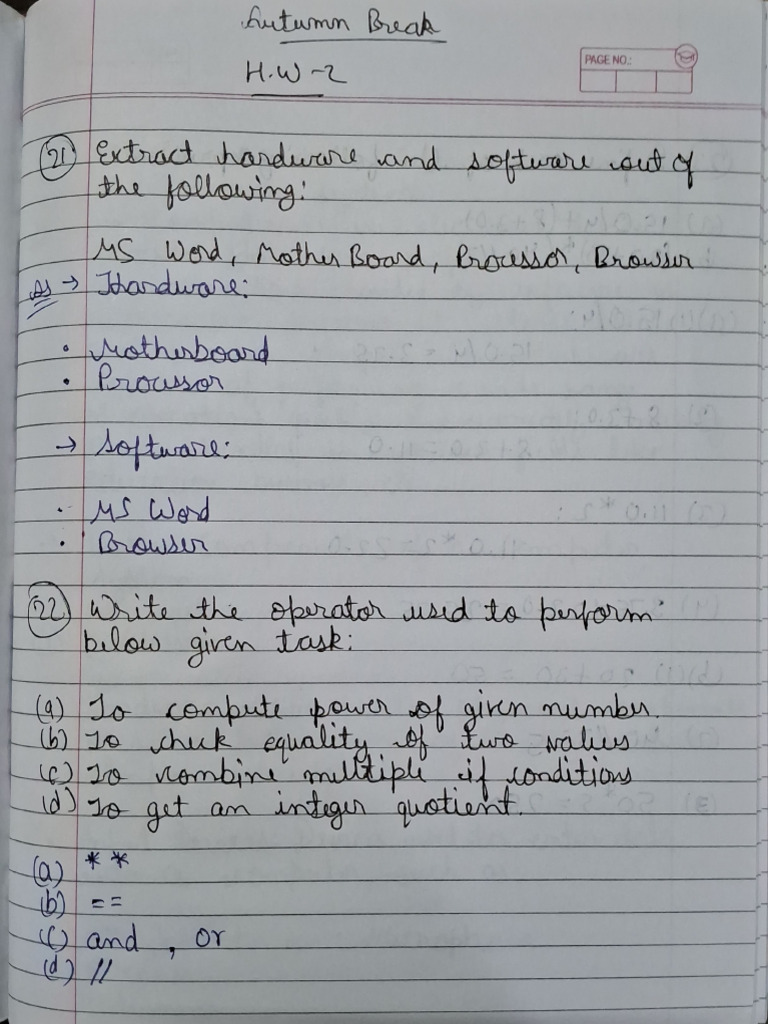 Autumn Break
H.W-2
PAGE NO.:
21 Extract hardware and software out of
the following:
MS Word, Mother Board, Processor, Browser
As → Hardware:
• Motherboard
• Processor
→ Software:
• MS Word
• Browser
22 Write the operator used to perform
below given task:
(a) To compute power of given number.
(b) To check equality of two values
(c) To combine multiple if conditions
(d) To get an integer quotient.
(a) **
(b) ==
(c) and , or
(d) //